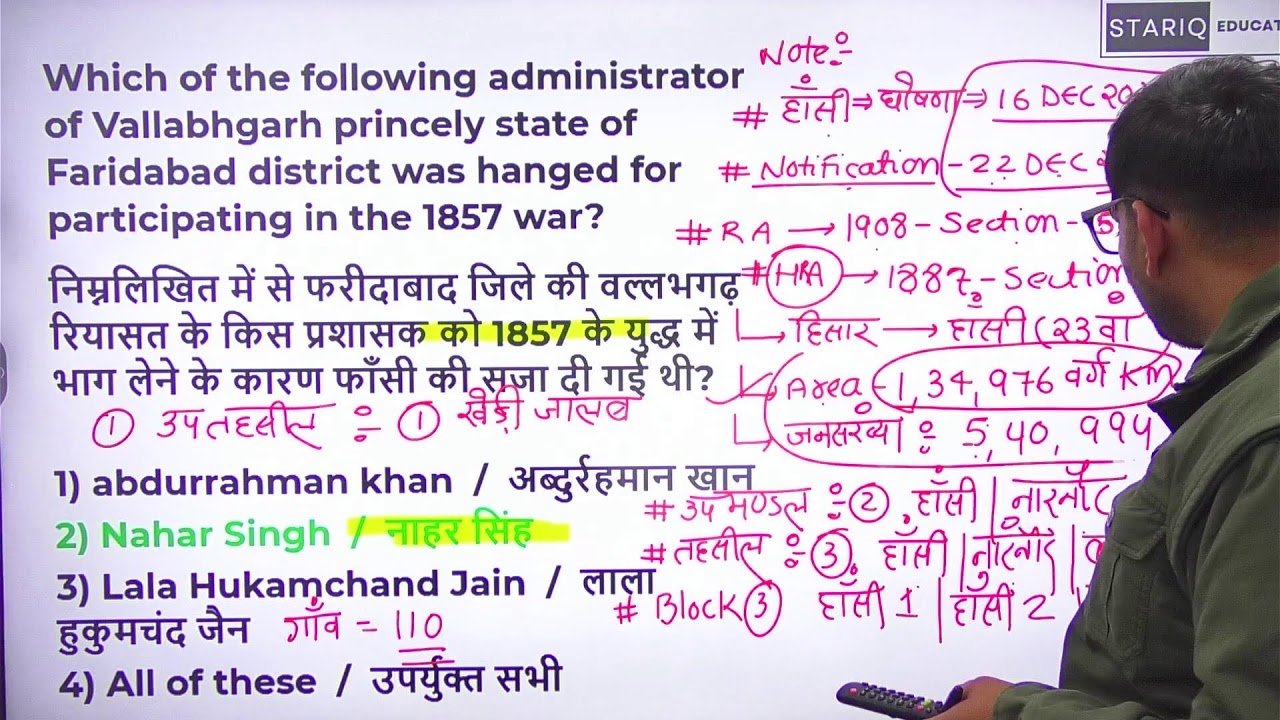 STARIQ EDUCAT
Which of the following administrator
of Vallabhgarh princely state of
Faridabad district was hanged for
participating in the 1857 war?
निम्नलिखित में से फरीदाबाद जिले की वल्लभगढ़
रियासत के किस प्रशासक को 1857 के युद्ध में
भाग लेने के कारण फाँसी की सजा दी गई थी?
① उपतहसील ÷ ① खेड़ी जालब
1) abdurrahman khan / अब्दुर्रहमान खान
2) Nahar Singh / नाहर सिंह
3) Lala Hukamchand Jain / लाला
हुकुमचंद जैन
गाँव = 110
4) All of these / उपर्युक्त सभी
Note:-
# हाँसी ⇒ घोषणा ⇒ 16 DEC 20
# Notification - 22 DEC
# RA → 1908 - Section - 5
# HRA → 1887 - Section
हिसार → हाँसी (23वा
Area - 1,34,976 वर्ग Km
जनसंख्या : 5,40,994
# उपमण्डल : ② हाँसी | नारनौंद
# तहसील : ③ हाँसी | नारनौंद |
# Block ③ हाँसी 1 | हाँसी 2